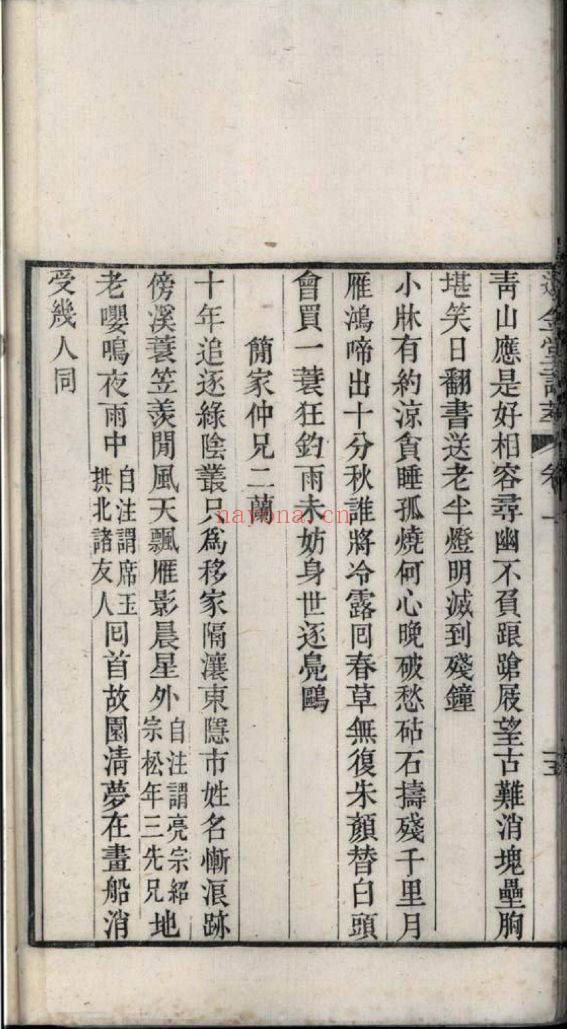 青山應是好相容尋幽不負踉蹌屐望古難消塊壘胸
堪笑日翻書送老半燈明滅到殘鐘
小牀有約涼貪睡孤燒何心晚破愁砧石擣殘千里月
雁鴻啼出十分秋誰將冷露回春草無復朱顏替白頭
會買一蓑狂釣雨未妨身世逐鳧鷗
簡家仲兄二蘭
十年追逐綠陰叢只爲移家隔瀼東隱市姓名慚浪跡
傍溪蓑笠羨閒風天飄雁影晨星外自注謂亮宗紹宗松年三先兄地
老嚶鳴夜雨中自注謂席玉拱北諸友人回首故園清夢在畫船消
受幾人同
nayona.cn